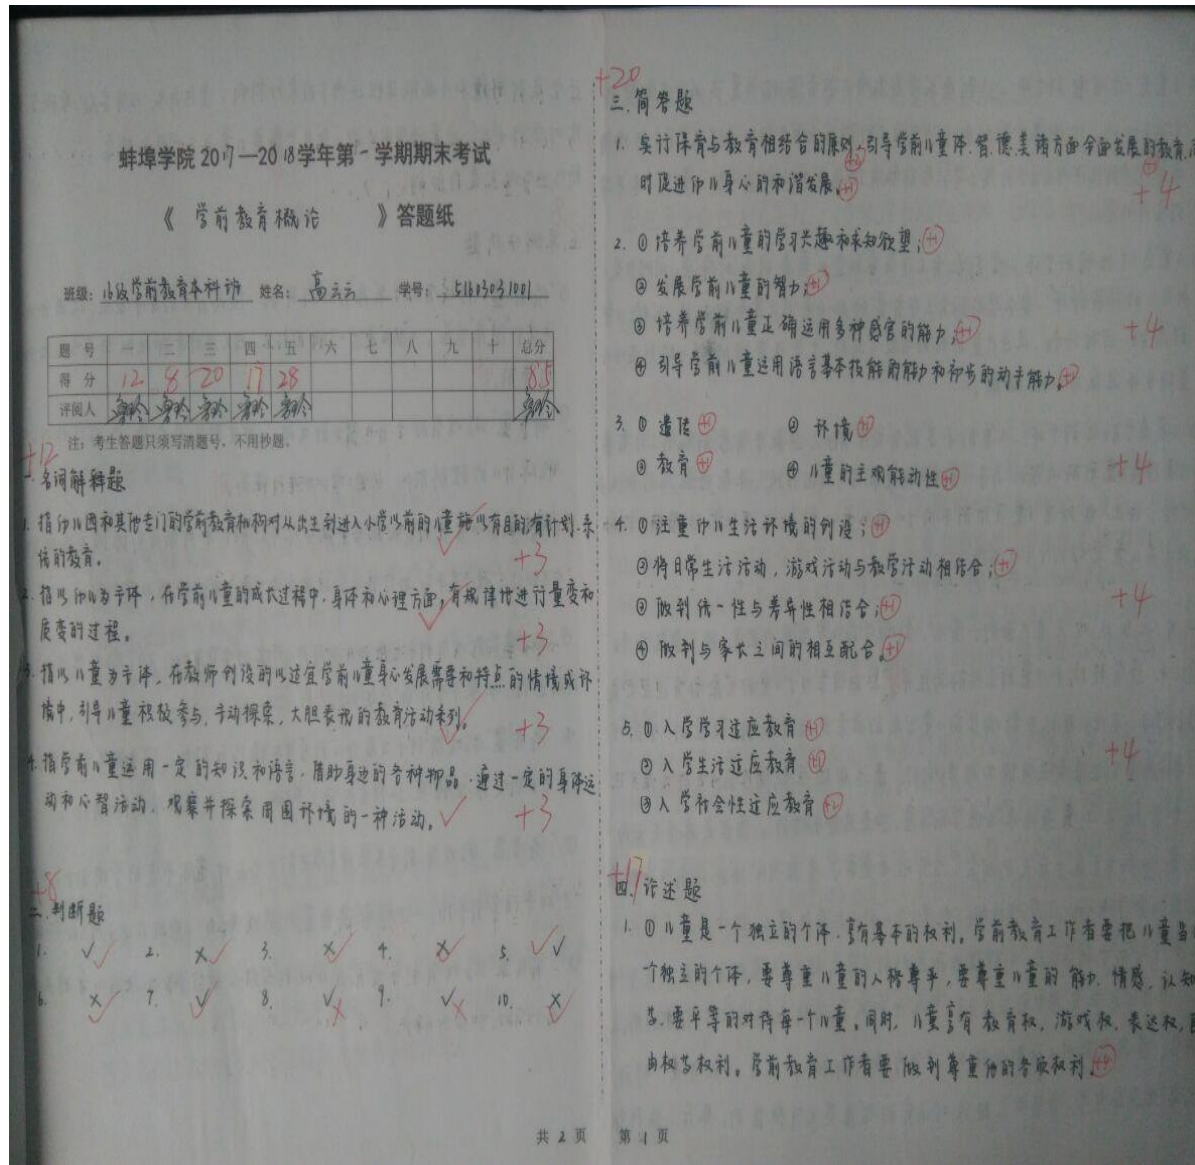 蚌埠学院2017—2018学年第一学期期末考试
《 学前教育概论 》答题纸
班级: 16级学前教育本科班 姓名: 高云云 学号: 51603031001
题 号 一 二 三 四 五 六 七 八 九 十 总分
得 分 12 8 20 17 28 85
评阅人
注: 考生答题只须写清题号, 不用抄题。
+12
一.名词解释题
1. 指幼儿园和其他专门的学前教育机构对从出生到进入小学以前的儿童施以有目的.有计划.系
统的教育。
+3
2. 指以幼儿为主体，在学前儿童的成长过程中.身体和心理方面,有规律地进行量变和
质变的过程。
+3
3. 指以儿童为主体，在教师创设的以适宜学前儿童身心发展需要和特点的情境或环
境中,引导儿童积极参与,主动探索,大胆表现的教育活动系列。
+3
4. 指学前儿童运用一定的知识和语言.借助身边的各种物品.通过一定的身体运
动和心智活动.观察并探索周围环境的一种活动。
+3
+8
二.判断题
1. ✓ 2. × 3. × 4. × 5. ✓
6. × 7. ✓ 8. ✓ 9. ✓ 10. ×
+20
三.简答题
1. 实行保育与教育相结合的原则,引导学前儿童体.智.德.美诸方面全面发展的教育,
时促进幼儿身心的和谐发展。 +1
+4
2. ① 培养学前儿童的学习兴趣和求知欲望; +1
② 发展学前儿童的智力; +1
③ 培养学前儿童正确运用多种感官的能力; +1
+4
④ 引导学前儿童运用语言基本技能的能力和初步的动手能力。 +1
3. ① 遗传 +1 ② 环境 +1
③ 教育 +1 ④ 儿童的主观能动性 +1
+4
4. ① 注重幼儿生活环境的创设; +1
② 将日常生活活动，游戏活动与教学活动相结合; +1
③ 做到统一性与差异性相结合; +1
+4
④ 做到与家长之间的相互配合。 +1
5. ① 入学学习适应教育 +1
② 入学生活适应教育 +1
+4
③ 入学社会性适应教育 +2
+17
四.论述题
1. ① 儿童是一个独立的个体.享有基本的权利。学前教育工作者要把儿童当
个独立的个体，要尊重儿童的人格尊严，要尊重儿童的能力.情感.认知
等.要平等的对待每一个儿童。同时.儿童享有教育权.游戏权.表达权,
由权等权利。学前教育工作者要做到尊重他的各项权利。 +4
共 2 页 第 1 页